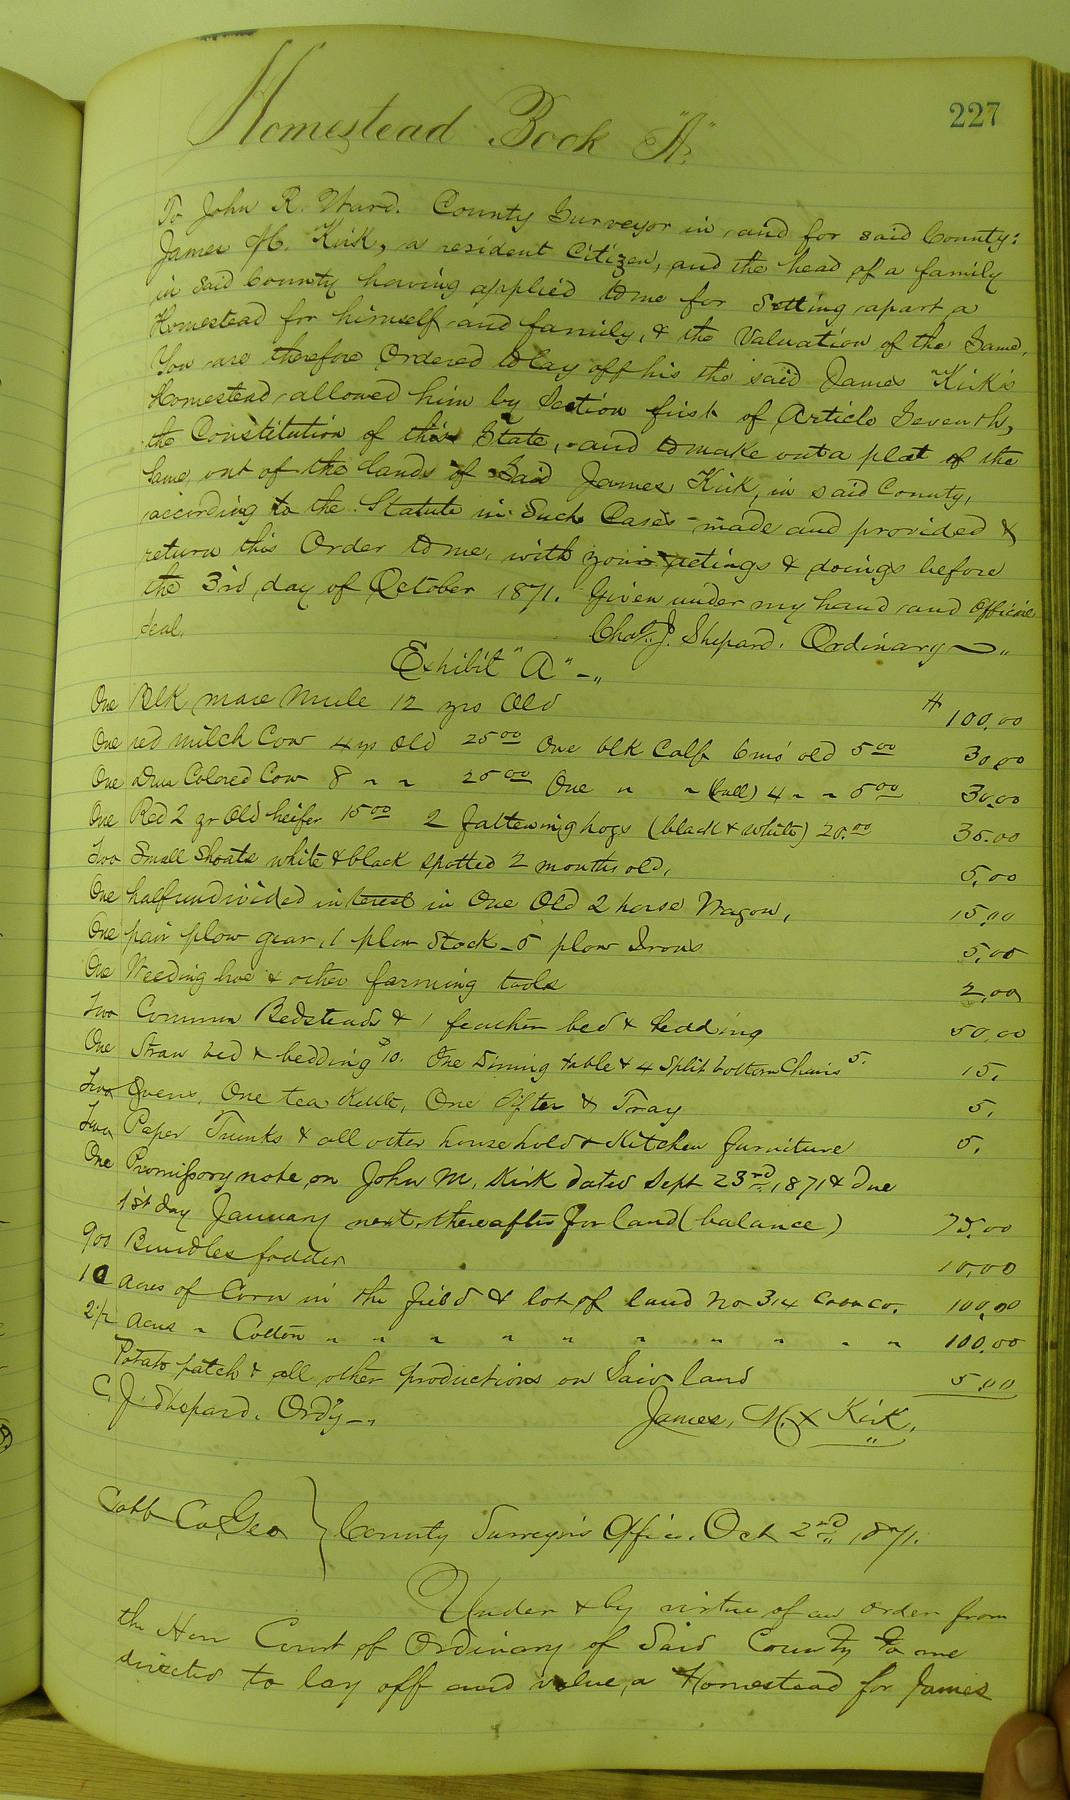 227
Homestead Book "A"
To John R. Ward. County Surveyor in and for said County:
James H. Kirk, a resident Citizen, and the head of a family
in said County having applied to me for Setting apart a
Homestead for himself and family, & the Valuation of the Same,
You are therefore Ordered to lay off his the said James Kirk's
Homestead allowed him by Section first of Article Seventh,
the Constitution of this State, and to make out a plat of the
Same, out of the lands of Said James Kirk, in said County,
according to the Statute in Such Cases made and provided &
return this Order to me, with your actings & doings before
the 3rd day of October 1871. Given under my hand and official
seal. Chas. J. Shepard. Ordinary
Exhibit "A"
One Blk mare Mule 12 yrs Old $ 100.00
One red milch Cow 4 yrs Old 25 00 One blk Calf 6 ms old 5 00 30.00
One Dun Colored Cow 8 " " 25 00 One " " (bull) 4 " " 5 00 30.00
One Red 2 yr Old heifer 15 00 2 fattening hogs (black & white) 20.00 35.00
Two Small Shoats white & black spotted 2 months old, 5.00
One half undivided interest in One Old 2 horse Wagon, 15.00
One pair plow gear, 1 plow Stock - 5 plow Irons 5.00
One Weeding hoe & other farming tools 2.00
Two Common Bedsteads & 1 feather bed & bedding 50.00
One Straw bed & bedding $10. One Dining table & 4 Split bottom Chairs 5. 15.
Two Ovens, One tea Kettle, One Sifter & Tray 5.
Two Paper Trunks & all other household & Kitchen furniture 5.
One Promissory note on John M. Kirk dated Sept 23rd, 1871 & Due
1st day January next thereafter for land (balance) 75.00
900 Bundles fodder 10.00
10 Acres of Corn in the field & lot of land No 314 Cobb Co. 100.00
2 1/2 Acres " Cotton " " " " " " " " " " 100.00
Potato patch & all other productions on Said land 5.00
C. J. Shepard. Ordy James, H. X Kirk,
Cobb Co, Geo } County Surveyor's Office. Oct 2nd, 1871.
Under & by virtue of an order from
the Hon Court of Ordinary of Said County to me
directed to lay off and value, a Homestead for James